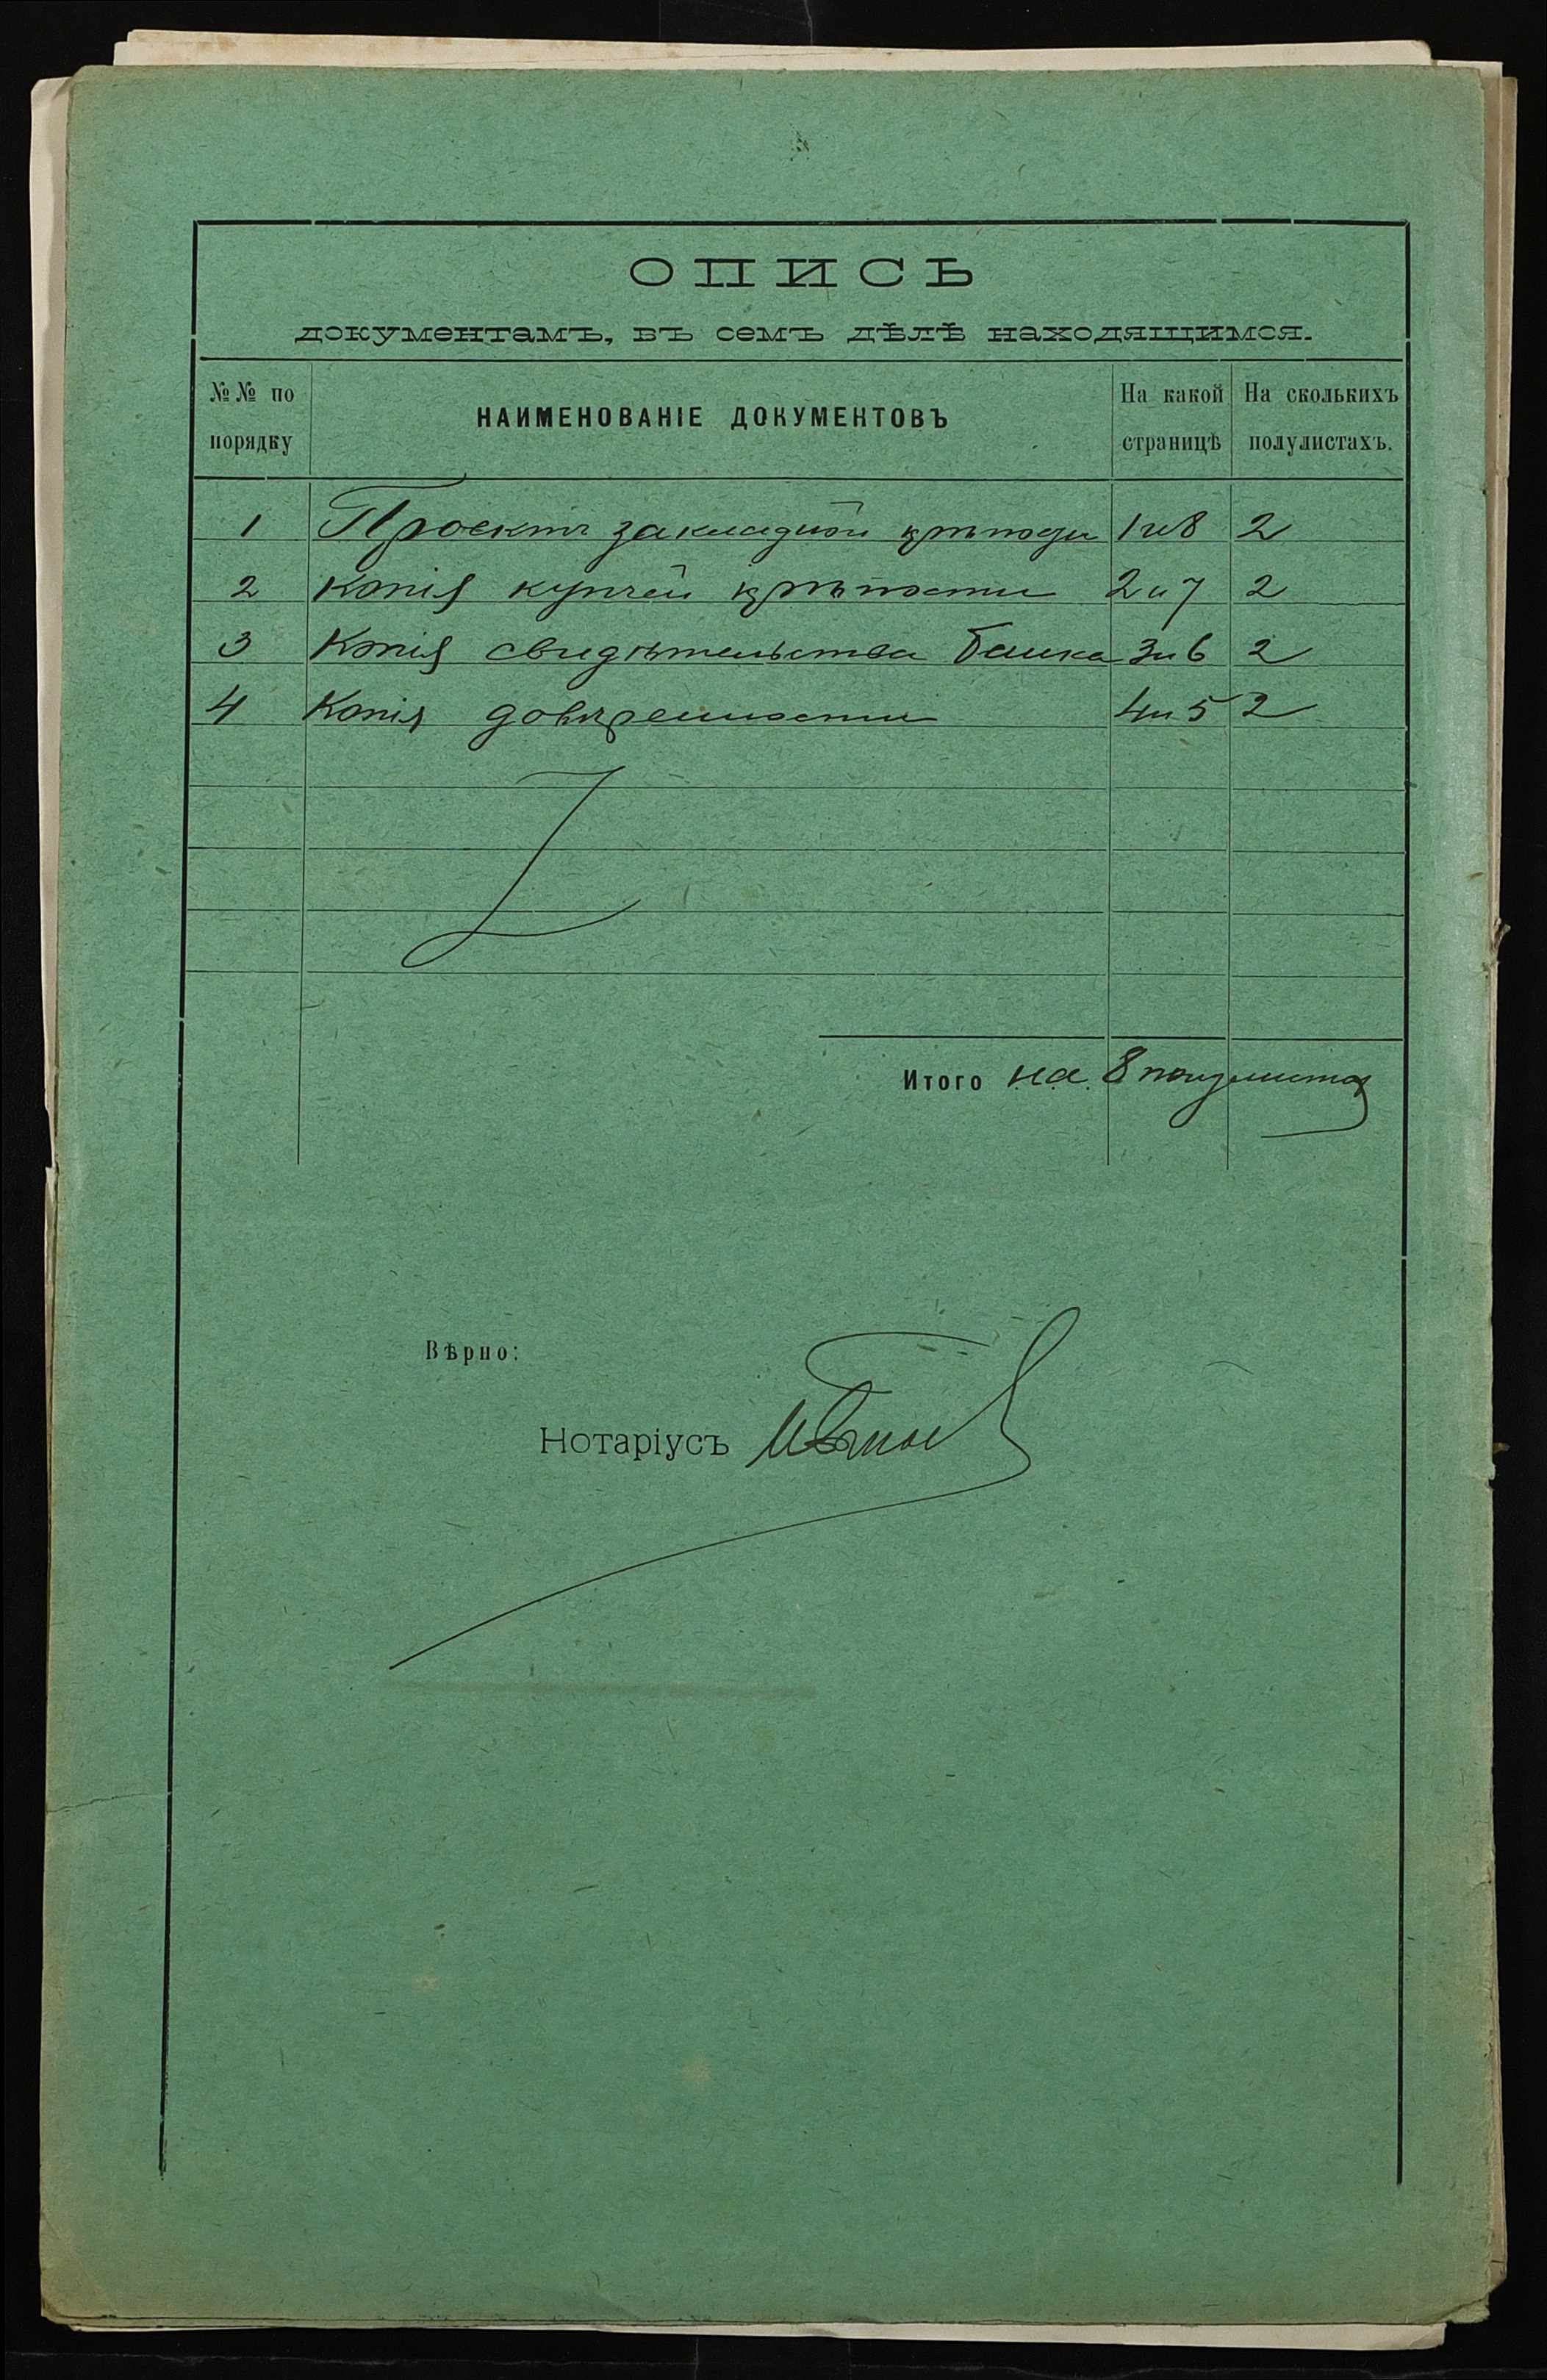 ОПИСЬ
документамъ, въ семъ дѣлѣ находящимся.
№№ по порядку НАИМЕНОВАНІЕ ДОКУМЕНТОВЪ На какой страницѣ На сколькихъ полулистахъ.
1 Проектъ закладной крѣпости 1 и 8 2
2 Копія купчей крѣпости 2 и 7 2
3 Копія свидѣтельства банка 3 и 6 2
4 Копія довѣренности 4 и 5 2
Итого на 8 полулистах
Вѣрно:
Нотаріусъ